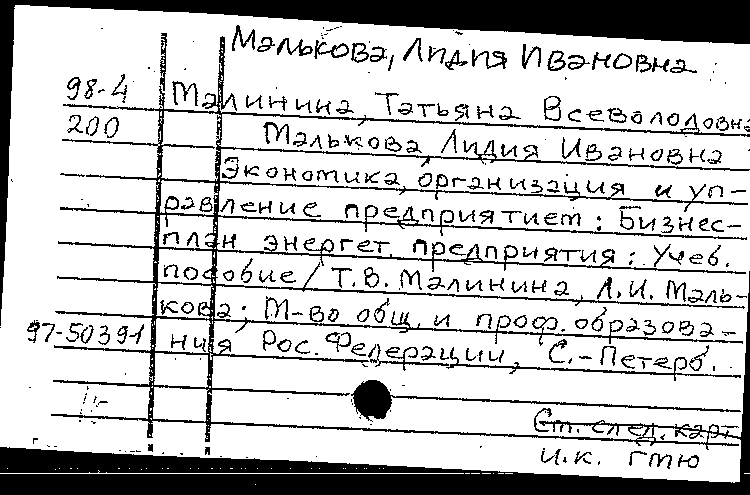 Малькова, Лидия Ивановна
98-4 Малинина, Татьяна Всеволодовна
200 Малькова, Лидия Ивановна
Экономика, организация и уп-
равление предприятием: Бизнес-
план энергет. предприятия: Учеб.
пособие / Т.В. Малинина, Л.И. Маль-
кова; М-во общ. и проф. образова-
97-50391 ния Рос. Федерации, С.-Петерб.
См. след. карт.
и.к. гмю